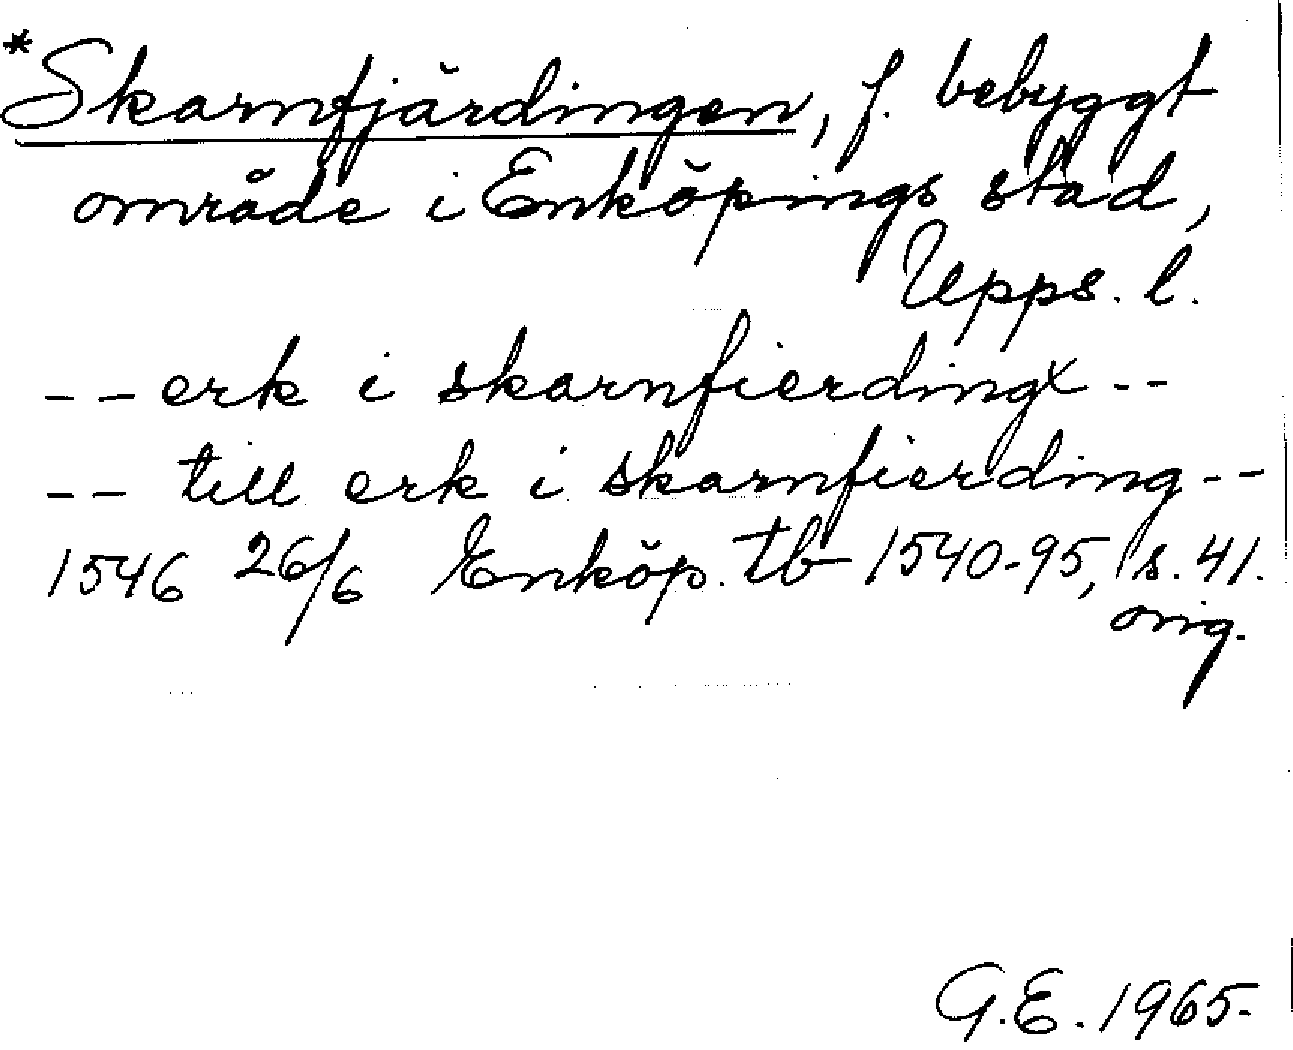 *Skarnfjärdingen, f. bebyggt
område i Enköpings stad,
Upps. l.
-- erk i skarnfierdingx --
-- till erk i skarnfierding --
1546 26/6 Enköp. tb 1540-95, s. 41.
orig.
G.E. 1965.